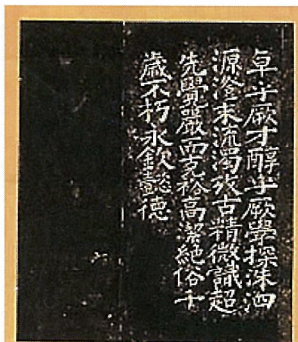 卓乎厥才醇乎厥學探洙泗
源澄末流濁古精微識超
先覺嚴而克裕高潔絕俗千
歲不朽永德